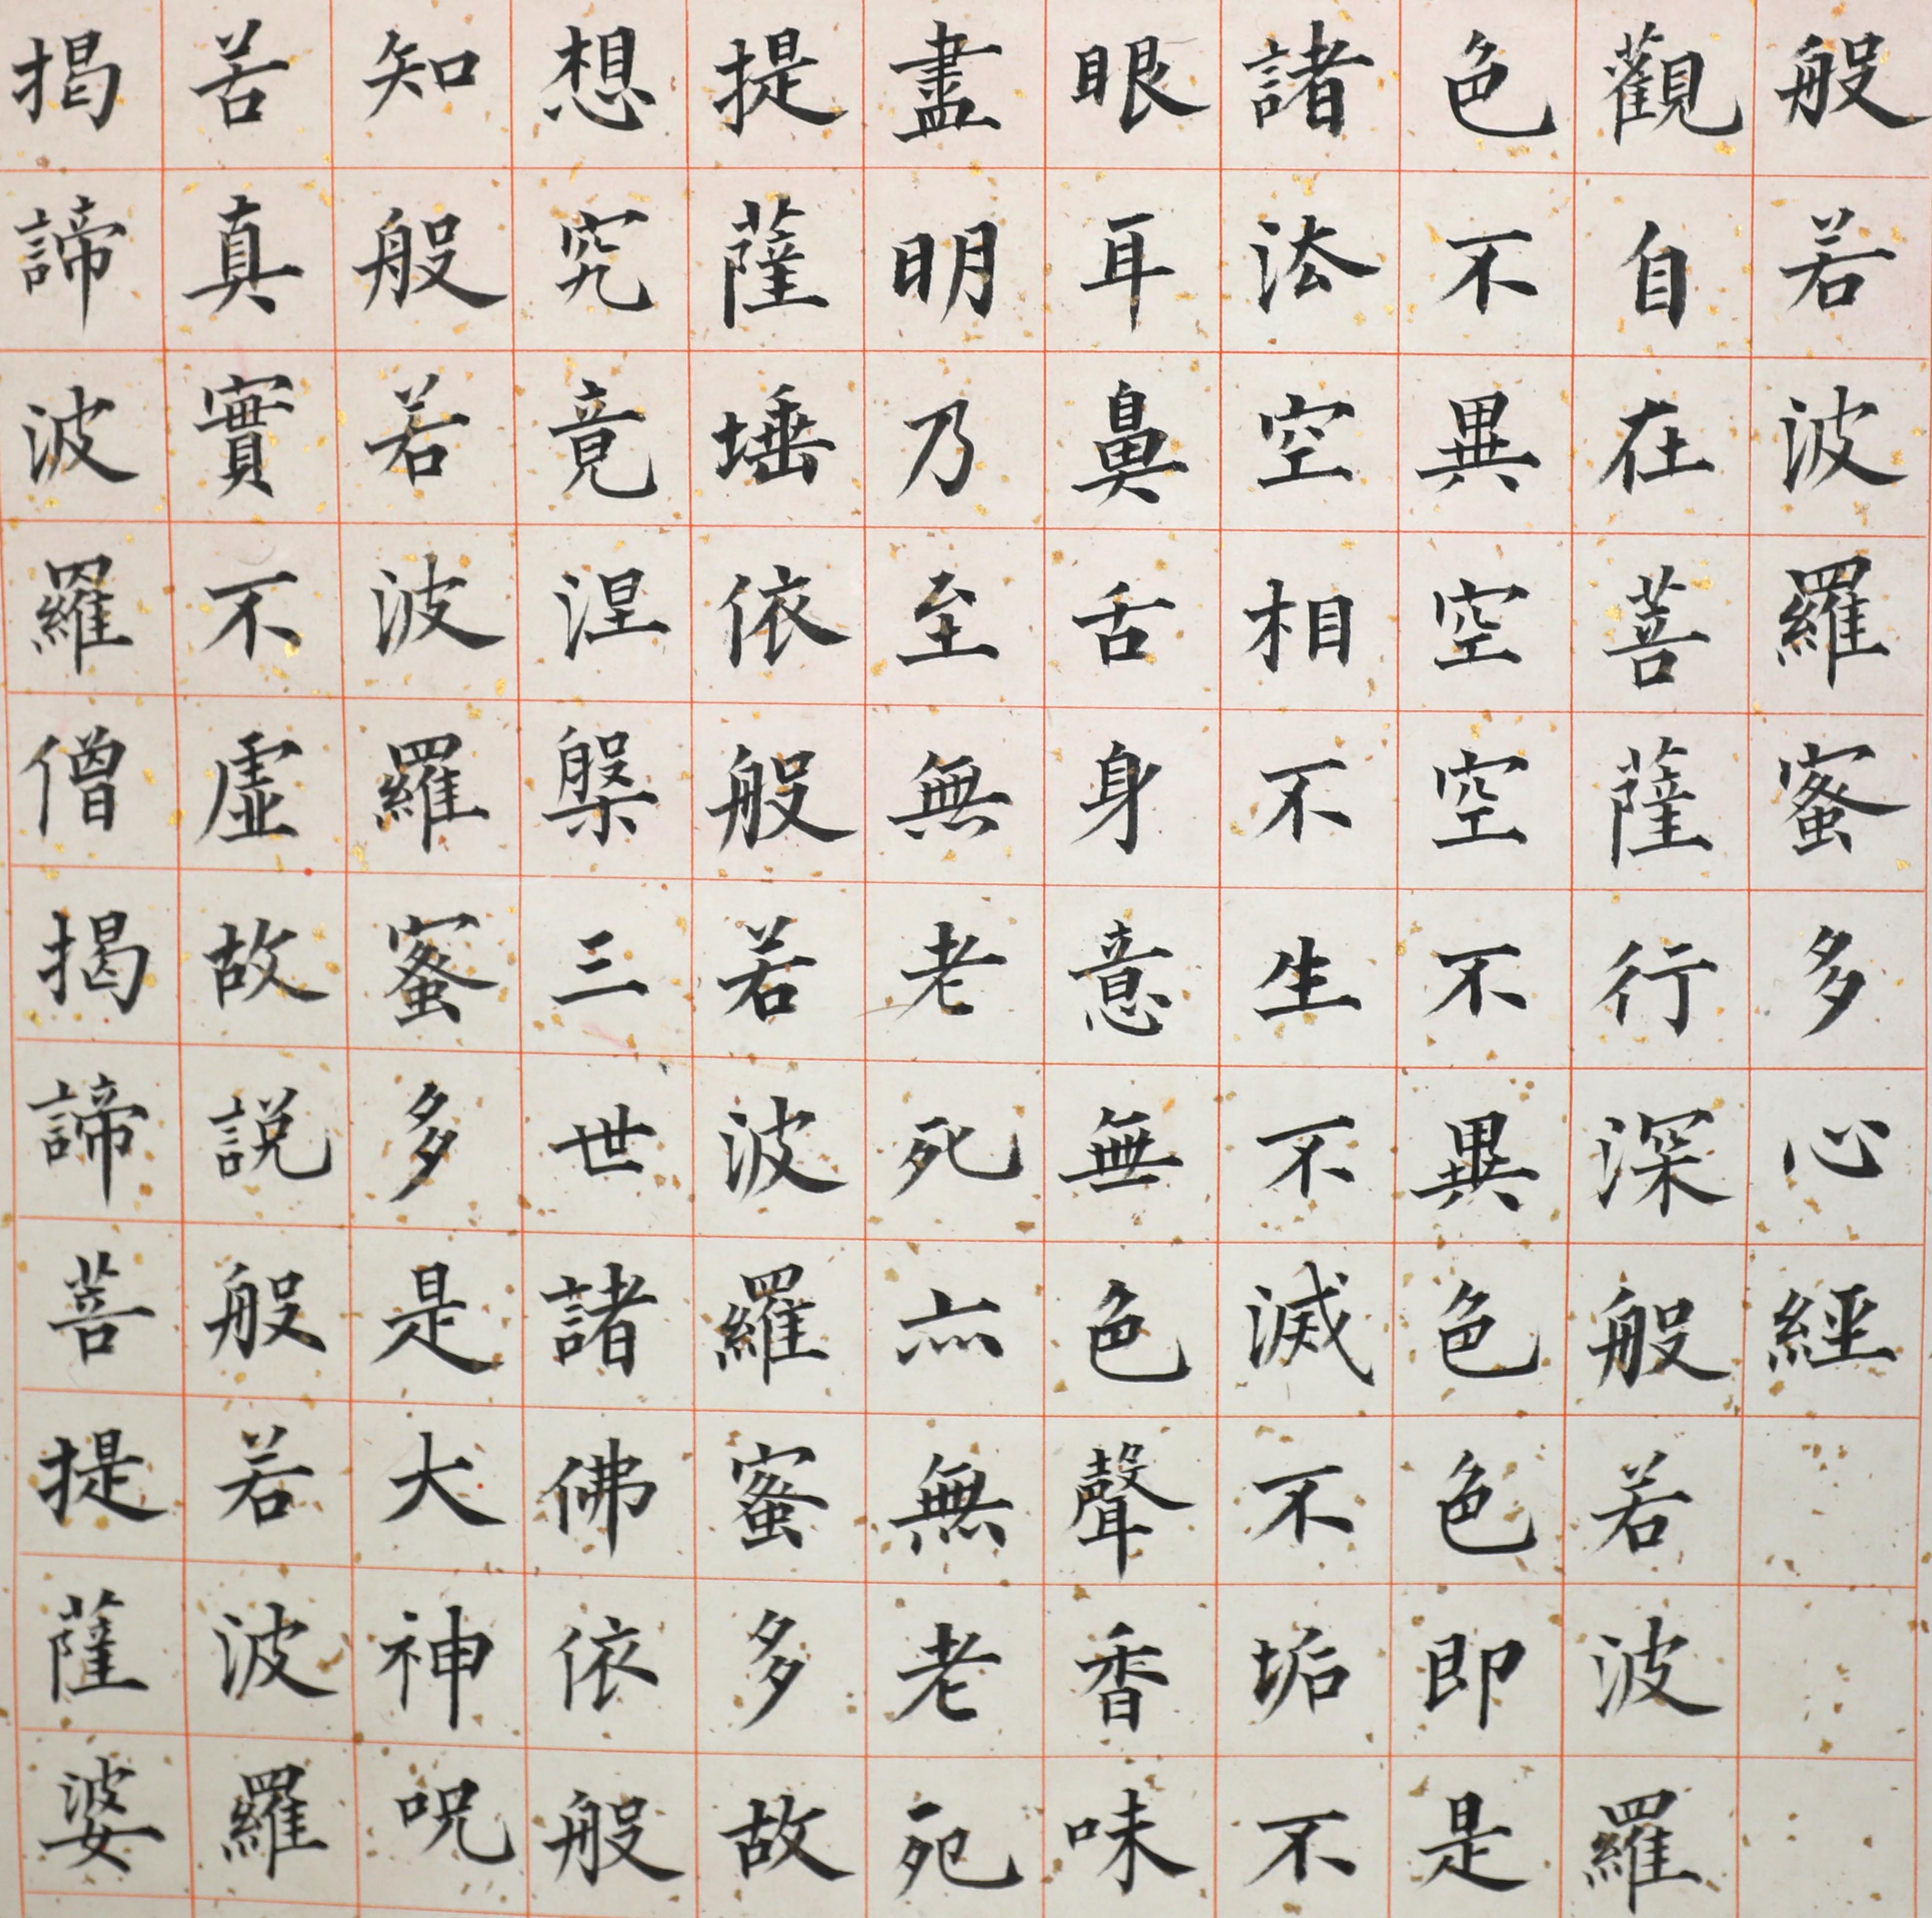 般若波羅蜜多心經
觀自在菩薩行深般若波羅
色不異空空不異色色即是
諸法空相不生不滅不垢不
眼耳鼻舌身意無色聲香味
盡明乃至無老死亦無老死
提薩埵依般若波羅蜜多故
想究竟涅槃三世諸佛依般
知般若波羅蜜多是大神咒
苦真實不虛故說般若波羅
揭諦波羅僧揭諦菩提薩婆